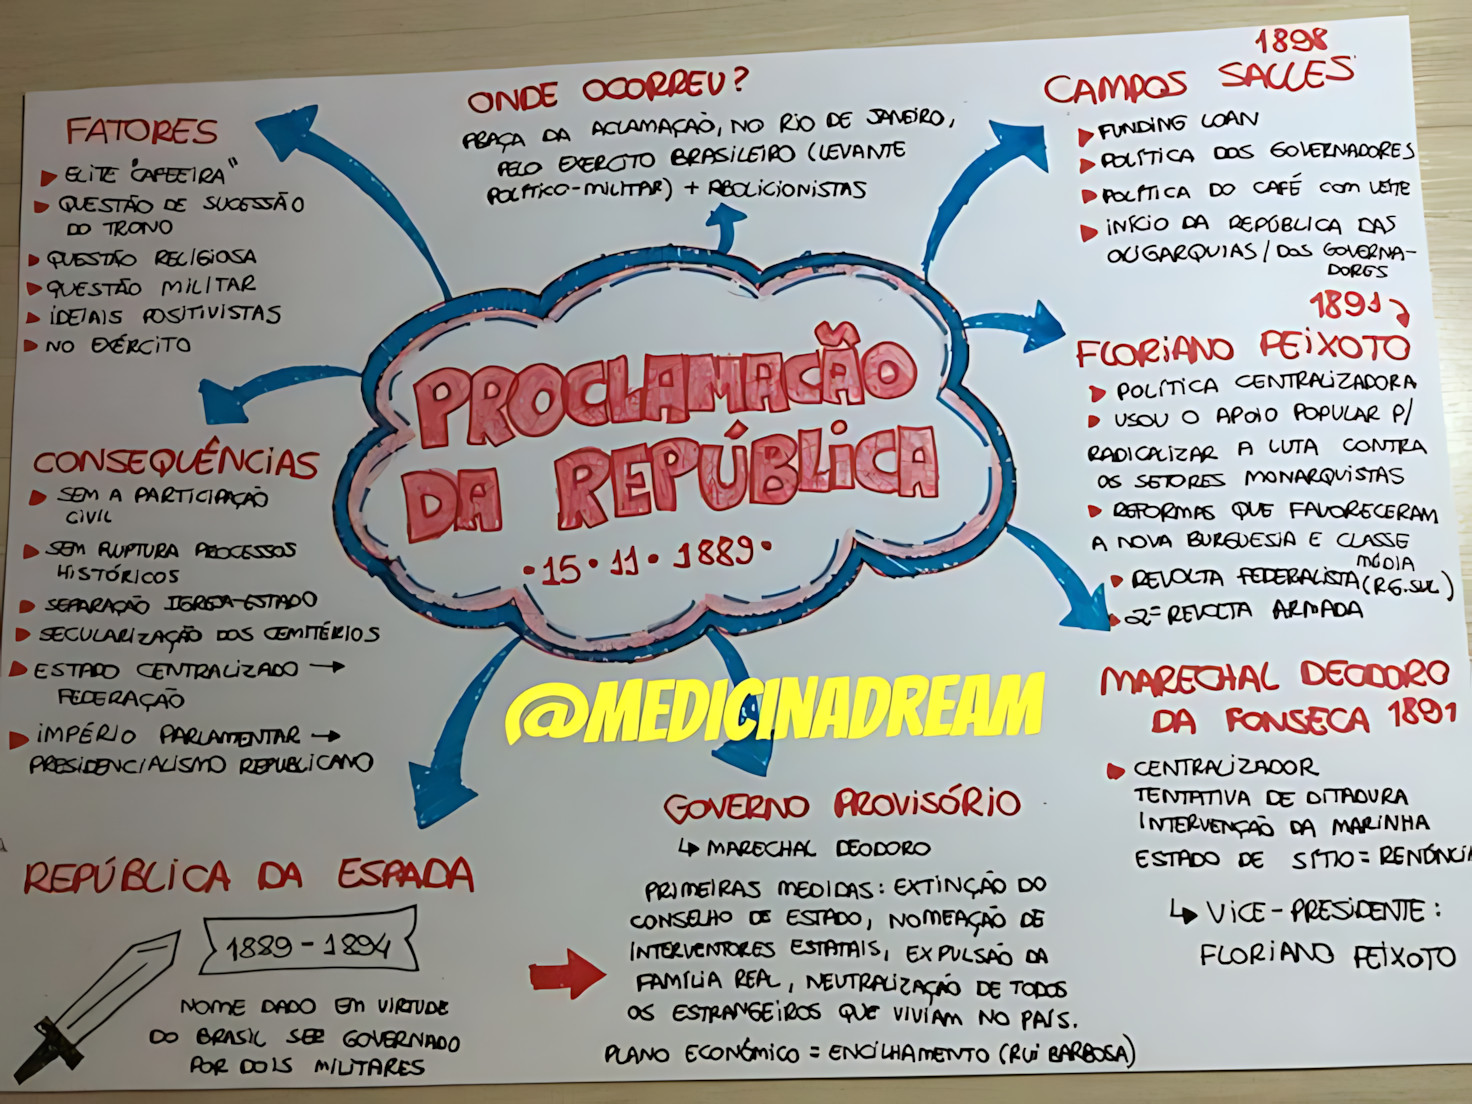 FATORES
ELITE "CAFEEIRA"
QUESTÃO DE SUCESSÃO
DO TRONO
QUESTÃO RELIGIOSA
QUESTÃO MILITAR
IDEIAIS POSITIVISTAS
NO EXÉRCITO
ONDE OCORREU?
PRAÇA DA ACLAMAÇÃO, NO RIO DE JANEIRO,
PELO EXERCITO BRASILEIRO (LEVANTE
POLÍTICO-MILITAR) + ABOLICIONISTAS
1898
CAMPOS SALLES
FUNDING LOAN
POLÍTICA DOS GOVERNADORES
POLÍTICA DO CAFÉ COM LEITE
INÍCIO DA REPÚBLICA DAS
OLIGARQUIAS/DOS GOVERNA-
DORES
1891
FLORIANO PEIXOTO
POLÍTICA CENTRALIZADORA
USOU O APOIO POPULAR P/
RADICALIZAR A LUTA CONTRA
OS SETORES MONARQUISTAS
REFORMAS QUE FAVORECERAM
A NOVA BURGUESIA E CLASSE
MÉDIA
REVOLTA FEDERALISTA (RG.SUL)
2= REVOLTA ARMADA
PROCLAMAÇÃO
DA REPÚBLICA
•15•11•1889•
CONSEQUÊNCIAS
SEM A PARTICIPAÇÃO
CIVIL
SEM RUPTURA PROCESSOS
HISTÓRICOS
SEPARAÇÃO IGREJA-ESTADO
SECULARIZAÇÃO DOS CEMITÉRIOS
ESTADO CENTRALIZADO →
FEDERAÇÃO
IMPÉRIO PARLAMENTAR →
PRESIDENCIALISMO REPUBLICANO
@MEDICINADREAM
MARECHAL DEODORO
DA FONSECA 1891
CENTRALIZADOR
TENTATIVA DE DITADURA
INTERVENÇÃO DA MARINHA
ESTADO DE SÍTIO = RENÚNCIA
↳ VICE-PRESIDENTE:
FLORIANO PEIXOTO
REPÚBLICA DA ESPADA
1889-1894
NOME DADO EM VIRTUDE
DO BRASIL SER GOVERNADO
POR DOIS MILITARES
GOVERNO PROVISÓRIO
↳ MARECHAL DEODORO
PRIMEIRAS MEDIDAS: EXTINÇÃO DO
CONSELHO DE ESTADO, NOMEAÇÃO DE
INTERVENTORES ESTATAIS, EXPULSÃO DA
FAMÍLIA REAL, NEUTRALIZAÇÃO DE TODOS
OS ESTRANGEIROS QUE VIVIAM NO PAÍS.
PLANO ECONÔMICO = ENCILHAMENTO (RUI BARBOSA)